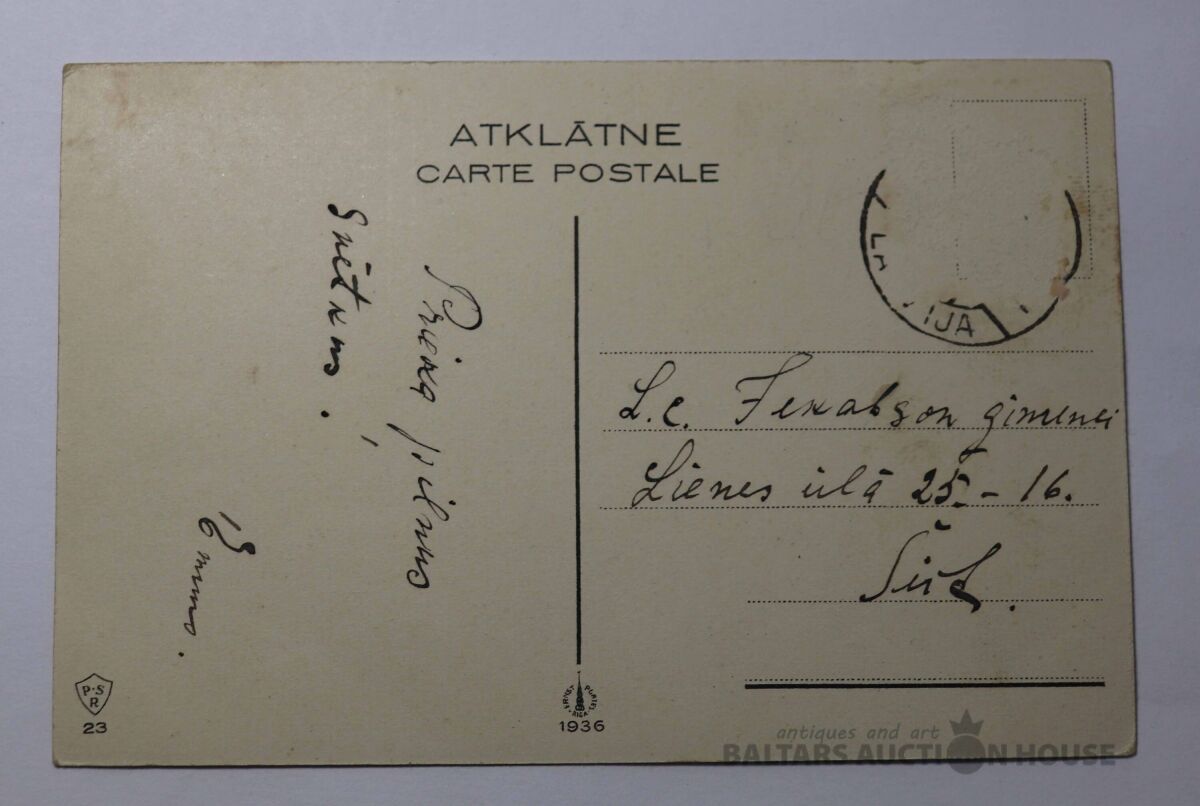 ATKLĀTNE
CARTE POSTALE
Prieka pilnus
svētkus.
Emma.
IJA
L.c. Jekabson ģimenei
Lienes ielā 25.-16.
Šeit.
P.S.R
23
1936
antiques and art
BALTARS AUCTION HOUSE